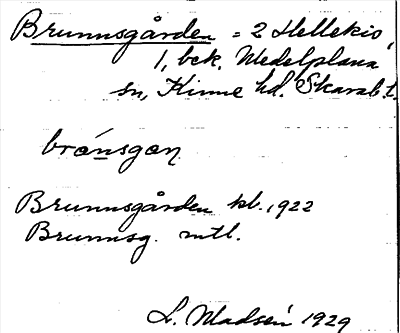 Brunnsgården = 2 Hellekis
1, bck. Medelplana
sn, Kinne hd. Skarab. l.
brónsgan
Brunnsgården kb. 1922
Brunnsg. mtl.
L. Madsén 1929